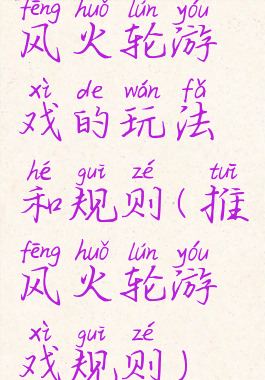 fēng huǒ lún yóu
风火轮游
xì de wán fǎ
戏的玩法
hé guī zé tuī
和规则(推
fēng huǒ lún yóu
风火轮游
xì guī zé
戏规则)